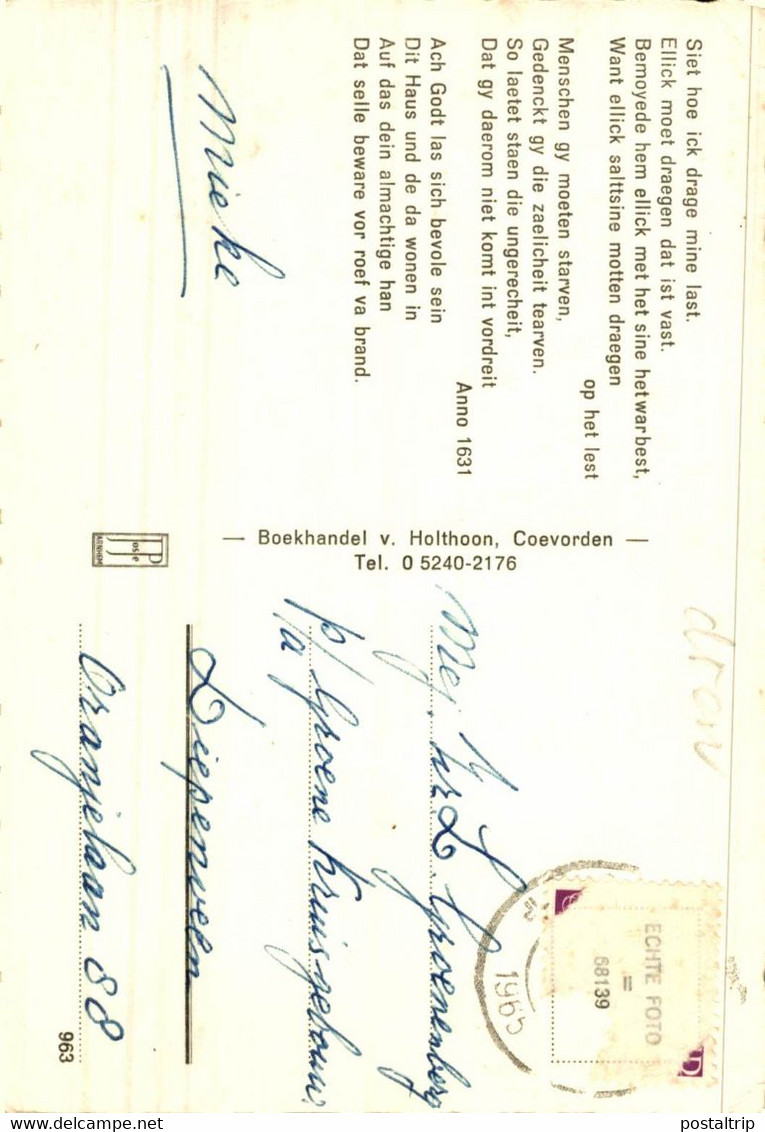 Siet hoe ick drage mine last.
Ellick moet draegen dat ist vast.
Bemoyede hem ellick met het sine het war best,
Want ellick salttsine motten draegen
op het lest
Menschen gy moeten starven,
Gedenckt gy die zaelicheit tearven.
So laetet staen die ungerecheit,
Dat gy daerom niet komt int vordreit
Anno 1631
Ach Godt las sich bevole sein
Dit Haus und de da wonen in
Auf das dein almachtige han
Dat selle beware vor roef va brand.
Mieke
— Boekhandel v. Holthoon, Coevorden —
Tel. 0 5240-2176
JosPé
ARNHEM
1965
ECHTE FOTO
=
68139
D
Mej. L. Groenenberg
p/a Groene Kruisgebouw
Diepenveen
Oranjelaan 88
963
www.delcampe.net
postaltrip